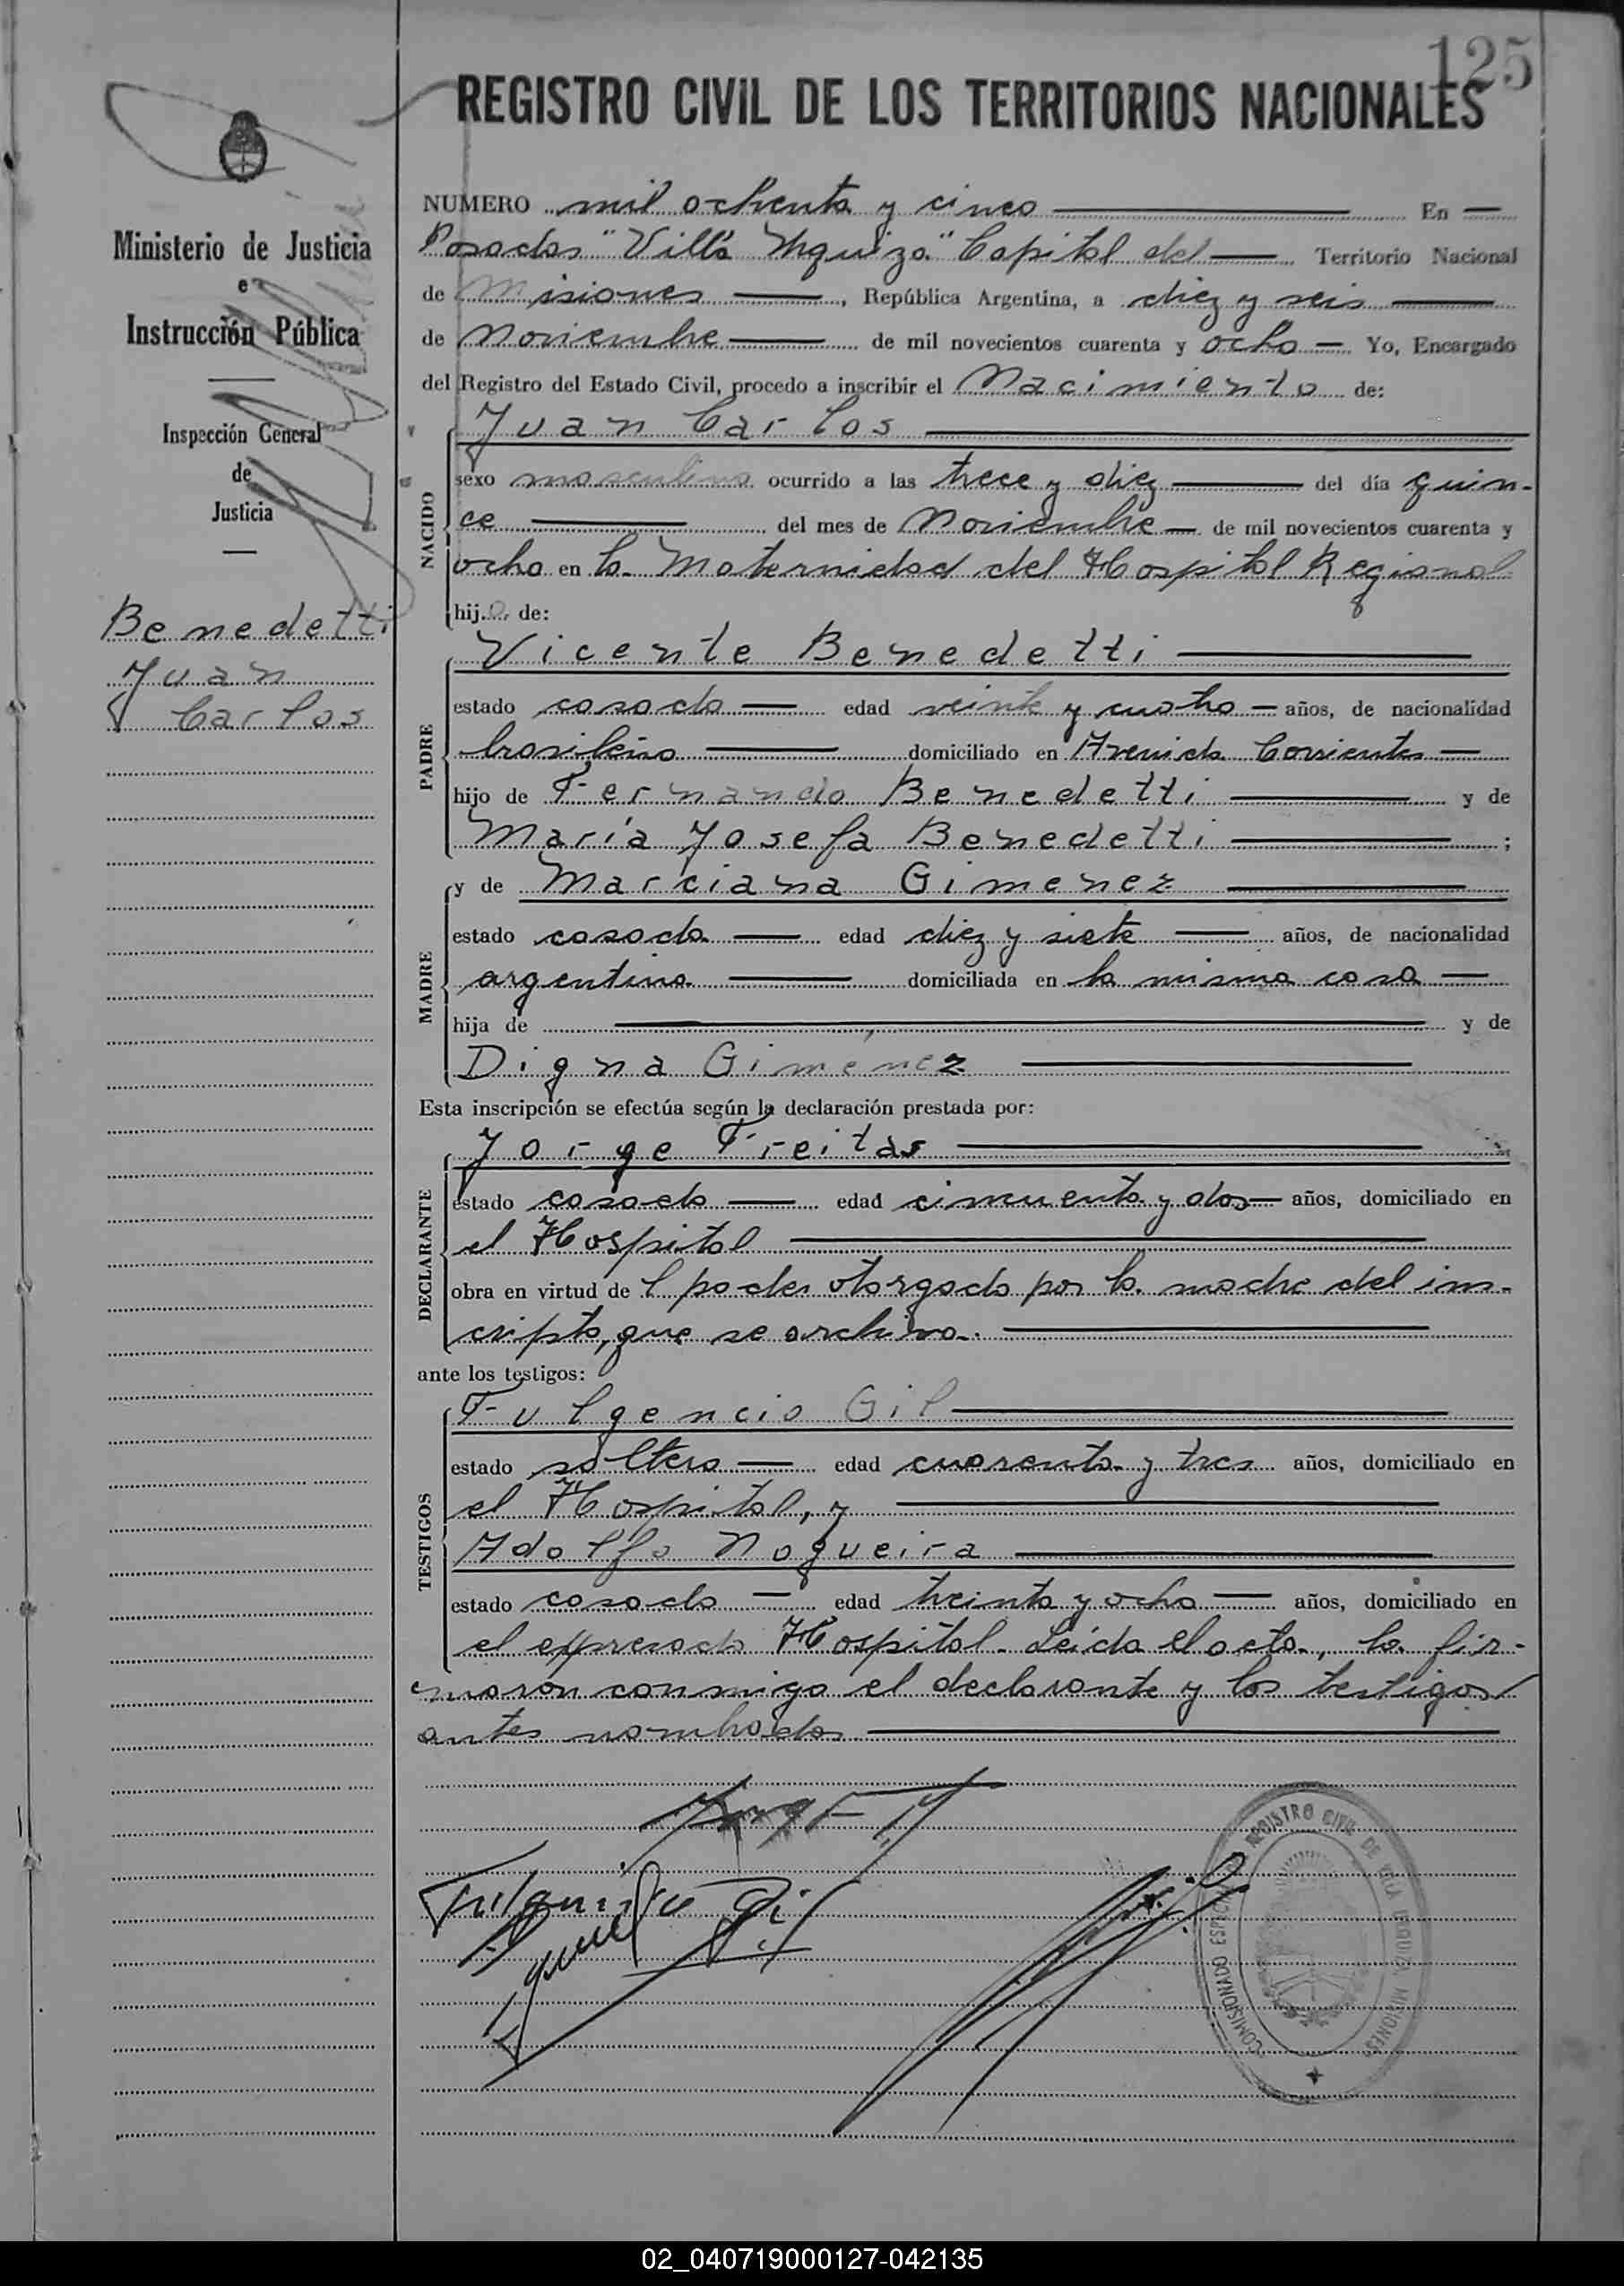 125
REGISTRO CIVIL DE LOS TERRITORIOS NACIONALES
Ministerio de Justicia
e
Instrucción Pública
Inspección General
de
Justicia
Benedetti
Juan
Carlos
NUMERO mil ochenta y cinco En
Posadas "Villa Urquiza" Capital del Territorio Nacional
de Misiones, República Argentina, a diez y seis
de Noviembre de mil novecientos cuarenta y ocho Yo, Encargado
del Registro del Estado Civil, procedo a inscribir el Nacimiento de:
NACIDO
Juan Carlos
sexo masculino ocurrido a las trece y diez del día quin-
ce del mes de Noviembre de mil novecientos cuarenta y
ocho en la Maternidad del Hospital Regional
hijo de:
PADRE
Vicente Benedetti
estado casado edad veinte y cuatro años, de nacionalidad
brasileño domiciliado en Avenida Corrientes
hijo de Fernando Benedetti y de
María Josefa Benedetti ;
MADRE
y de Marciana Gimenez
estado casada edad diez y siete años, de nacionalidad
argentina domiciliada en la misma casa
hija de y de
Digna Giménez
Esta inscripción se efectúa según la declaración prestada por:
DECLARANTE
Jorge Freitas
estado casado edad cincuenta y dos años, domiciliado en
el Hospital
obra en virtud de l poder otorgado por la madre del ins-
cripto, que se archiva.
ante los testigos:
TESTIGOS
Fulgencio Gil
estado soltero edad cuarenta y tres años, domiciliado en
el Hospital, y
Adolfo Nogueira
estado casado edad treinta y ocho años, domiciliado en
el expresado Hospital. Leída el acta, la fir-
maron conmigo el declarante y los testigos
antes nombrados
Fulgencio Gil
COMISIONADO ESPECIAL REGISTRO CIVIL DE VILLA URQUIZA MISIONES
02_040719000127-042135